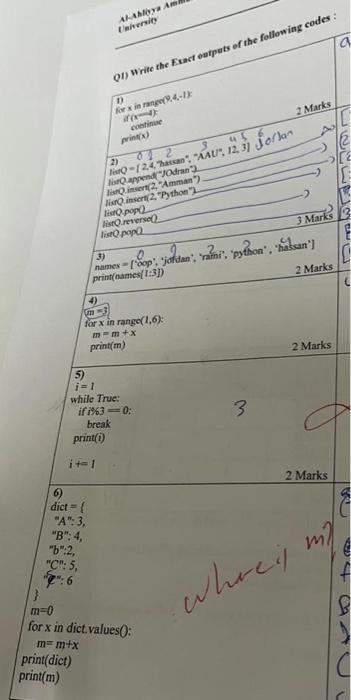 Al-Ahliyya
University
Q1) Write the Exact outputs of the following codes :
1)
for x in range(9,4,-1):
if(x==4):
continue
print(x)
2 Marks
0 1 2 3 4 5 6
Jordan
2)
listQ=[ 2,4,"hassan", "AAU", 12, 3]
listQ.append("JOdran")
listQ.insert(2,"Amman")
listQ.insert(2,"Python")
listQ.pop()
listQ.reverse()
listQ.pop()
3 Marks
3)
names = ['oop', 'jordan', 'rami', 'python', 'hassan']
print(names[1:3])
2 Marks
4)
m=3
for x in range(1,6):
m = m + x
print(m)
2 Marks
5)
i = 1
while True:
if i%3 == 0:
break
print(i)
3
i += 1
2 Marks
6)
dict = {
"A": 3,
"B": 4,
"b":2,
"C": 5,
": 6
}
m=0
for x in dict.values():
m= m+x
print(dict)
print(m)
where is m?